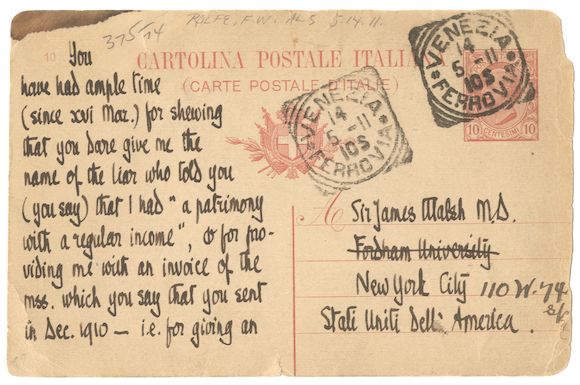 375/74
ROLFE, F.W. ALS 5.14.11.
10
CARTOLINA POSTALE ITALIANA
(CARTE POSTALE D'ITALIE)
VENEZIA
14
5-11
10S
FERROVIA
VENEZIA
14
5-11
10S
FERROVIA
10 CENTESIMI 10
You
have had ample time
(since xvi Mar.) for shewing
that you dare give me the
name of the liar who told you
(you say) that I had "a patrimony
with a regular income", & for pro-
viding me with an invoice of the
mss. which you say that you sent
in Dec. 1910 — i.e. for giving an
A Sir James Walsh M.D.
Fordham University
New York City 110 W. 74
Stati Uniti Dell' America.